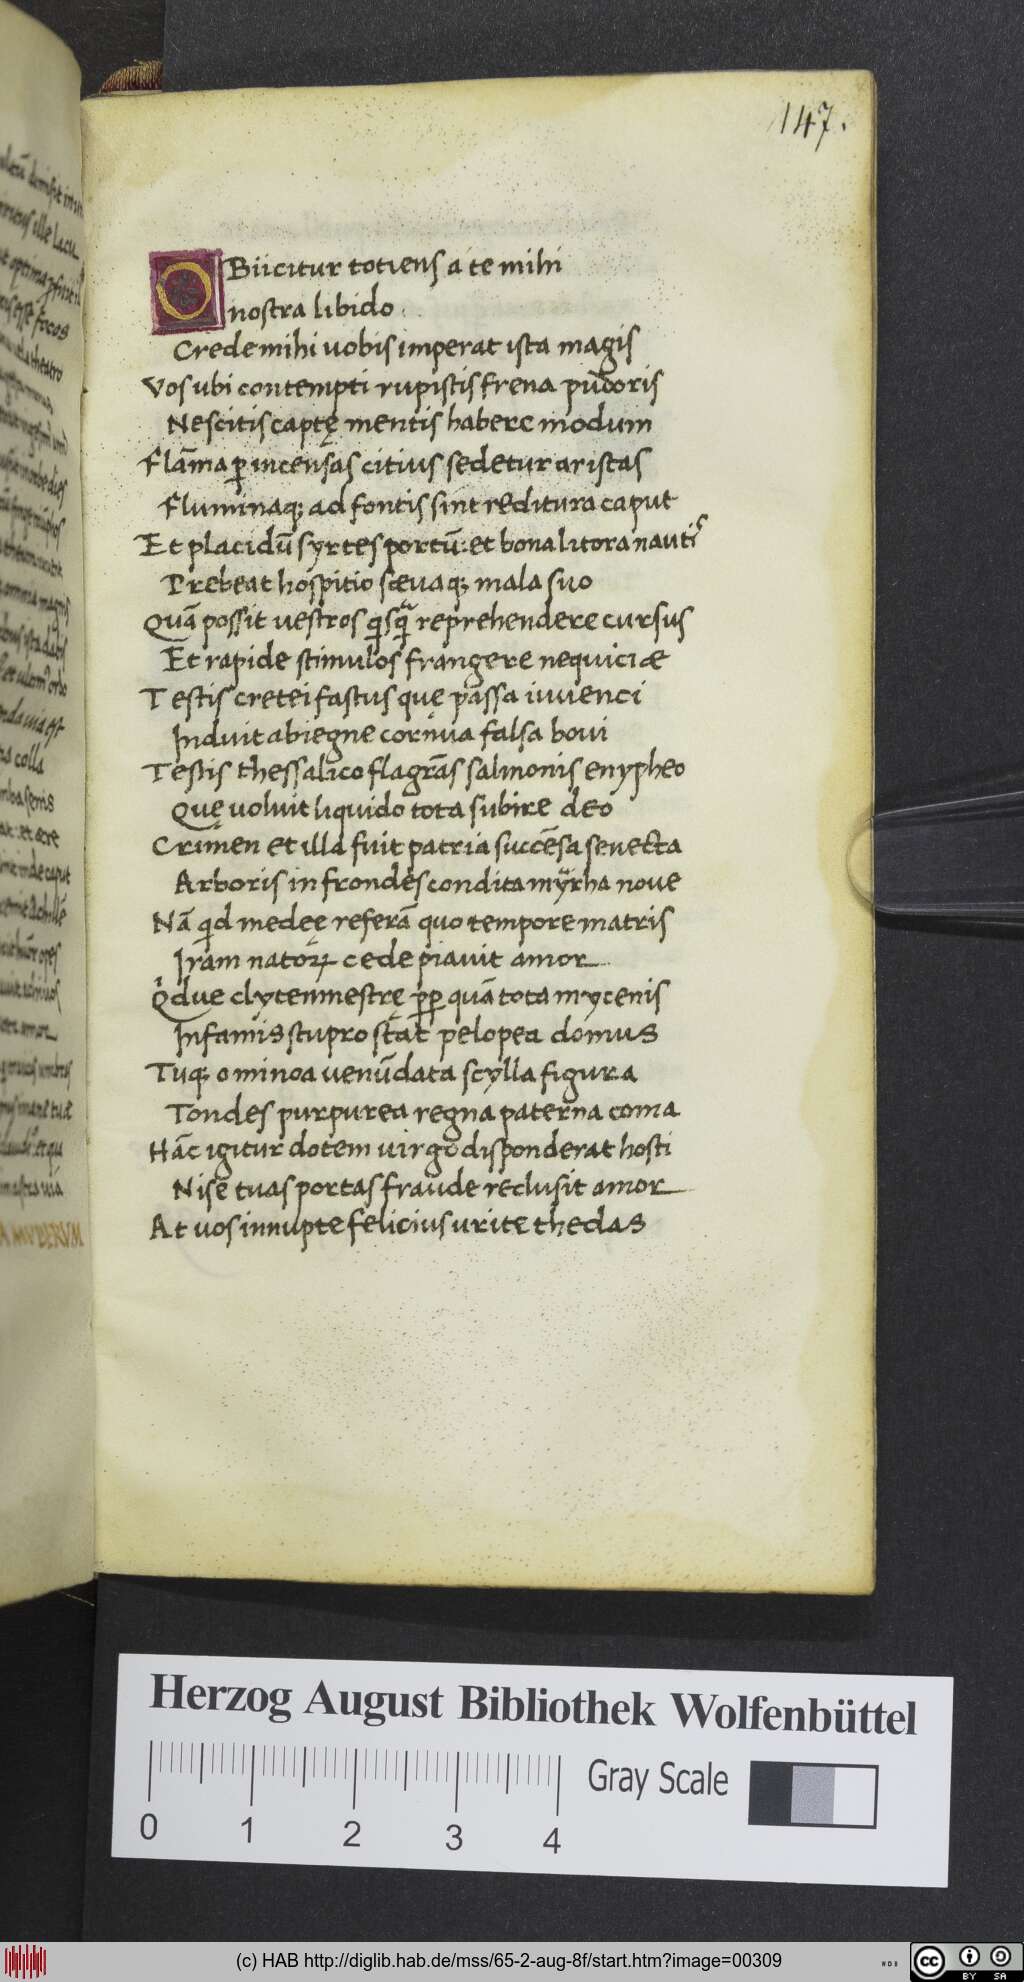 147.
OBiicitur totiens á te mihi
nostra libido
Crede mihi uobis imperat ista magis
Vos ubi contempti rupistis frena pudoris
Nescitis captę mentis habere modum
Flāma ꝑ incensas citius sedetur aristas
Fluminaqꝫ ad fontis sint reditura caput
Et placidū syrtes portū: et bona litora nautis
Prebeat hospitio sæuaqꝫ mala suo
Quā possit uestros qͥsqͣ reprehendere cursus
Et rapide stimulos frangere nequiciæ
Testis cretei fastus quę passa iuuenci
Induit abiegne cornua falsa boui
Testis thessalico flagrās salmonis enypheo
Quę uoluit liquido tota subire deo
Crimen et illa fuit patria succēsa senecta
Arboris in frondes condita myrrha noue
Nā qͥd medeę referā quo tempore matris
Iram natoꝝ cede piauit amor
Qͥd ue clytemnestrę ꝓpꝑ quā tota mycenis
Infamis stupro stat pelopea domus
Tuqꝫ o minoa uenūdata scylla figura
Tondes purpurea regna paterna coma
Hāc igitur dotem uirgo disponderat hosti
Nise tuas portas fraude reclusit amor
At uos innupte felicius urite thedas
Herzog August Bibliothek Wolfenbüttel
Gray Scale
0 1 2 3 4
(c) HAB http://diglib.hab.de/mss/65-2-aug-8f/start.htm?image=00309
cc BY SA